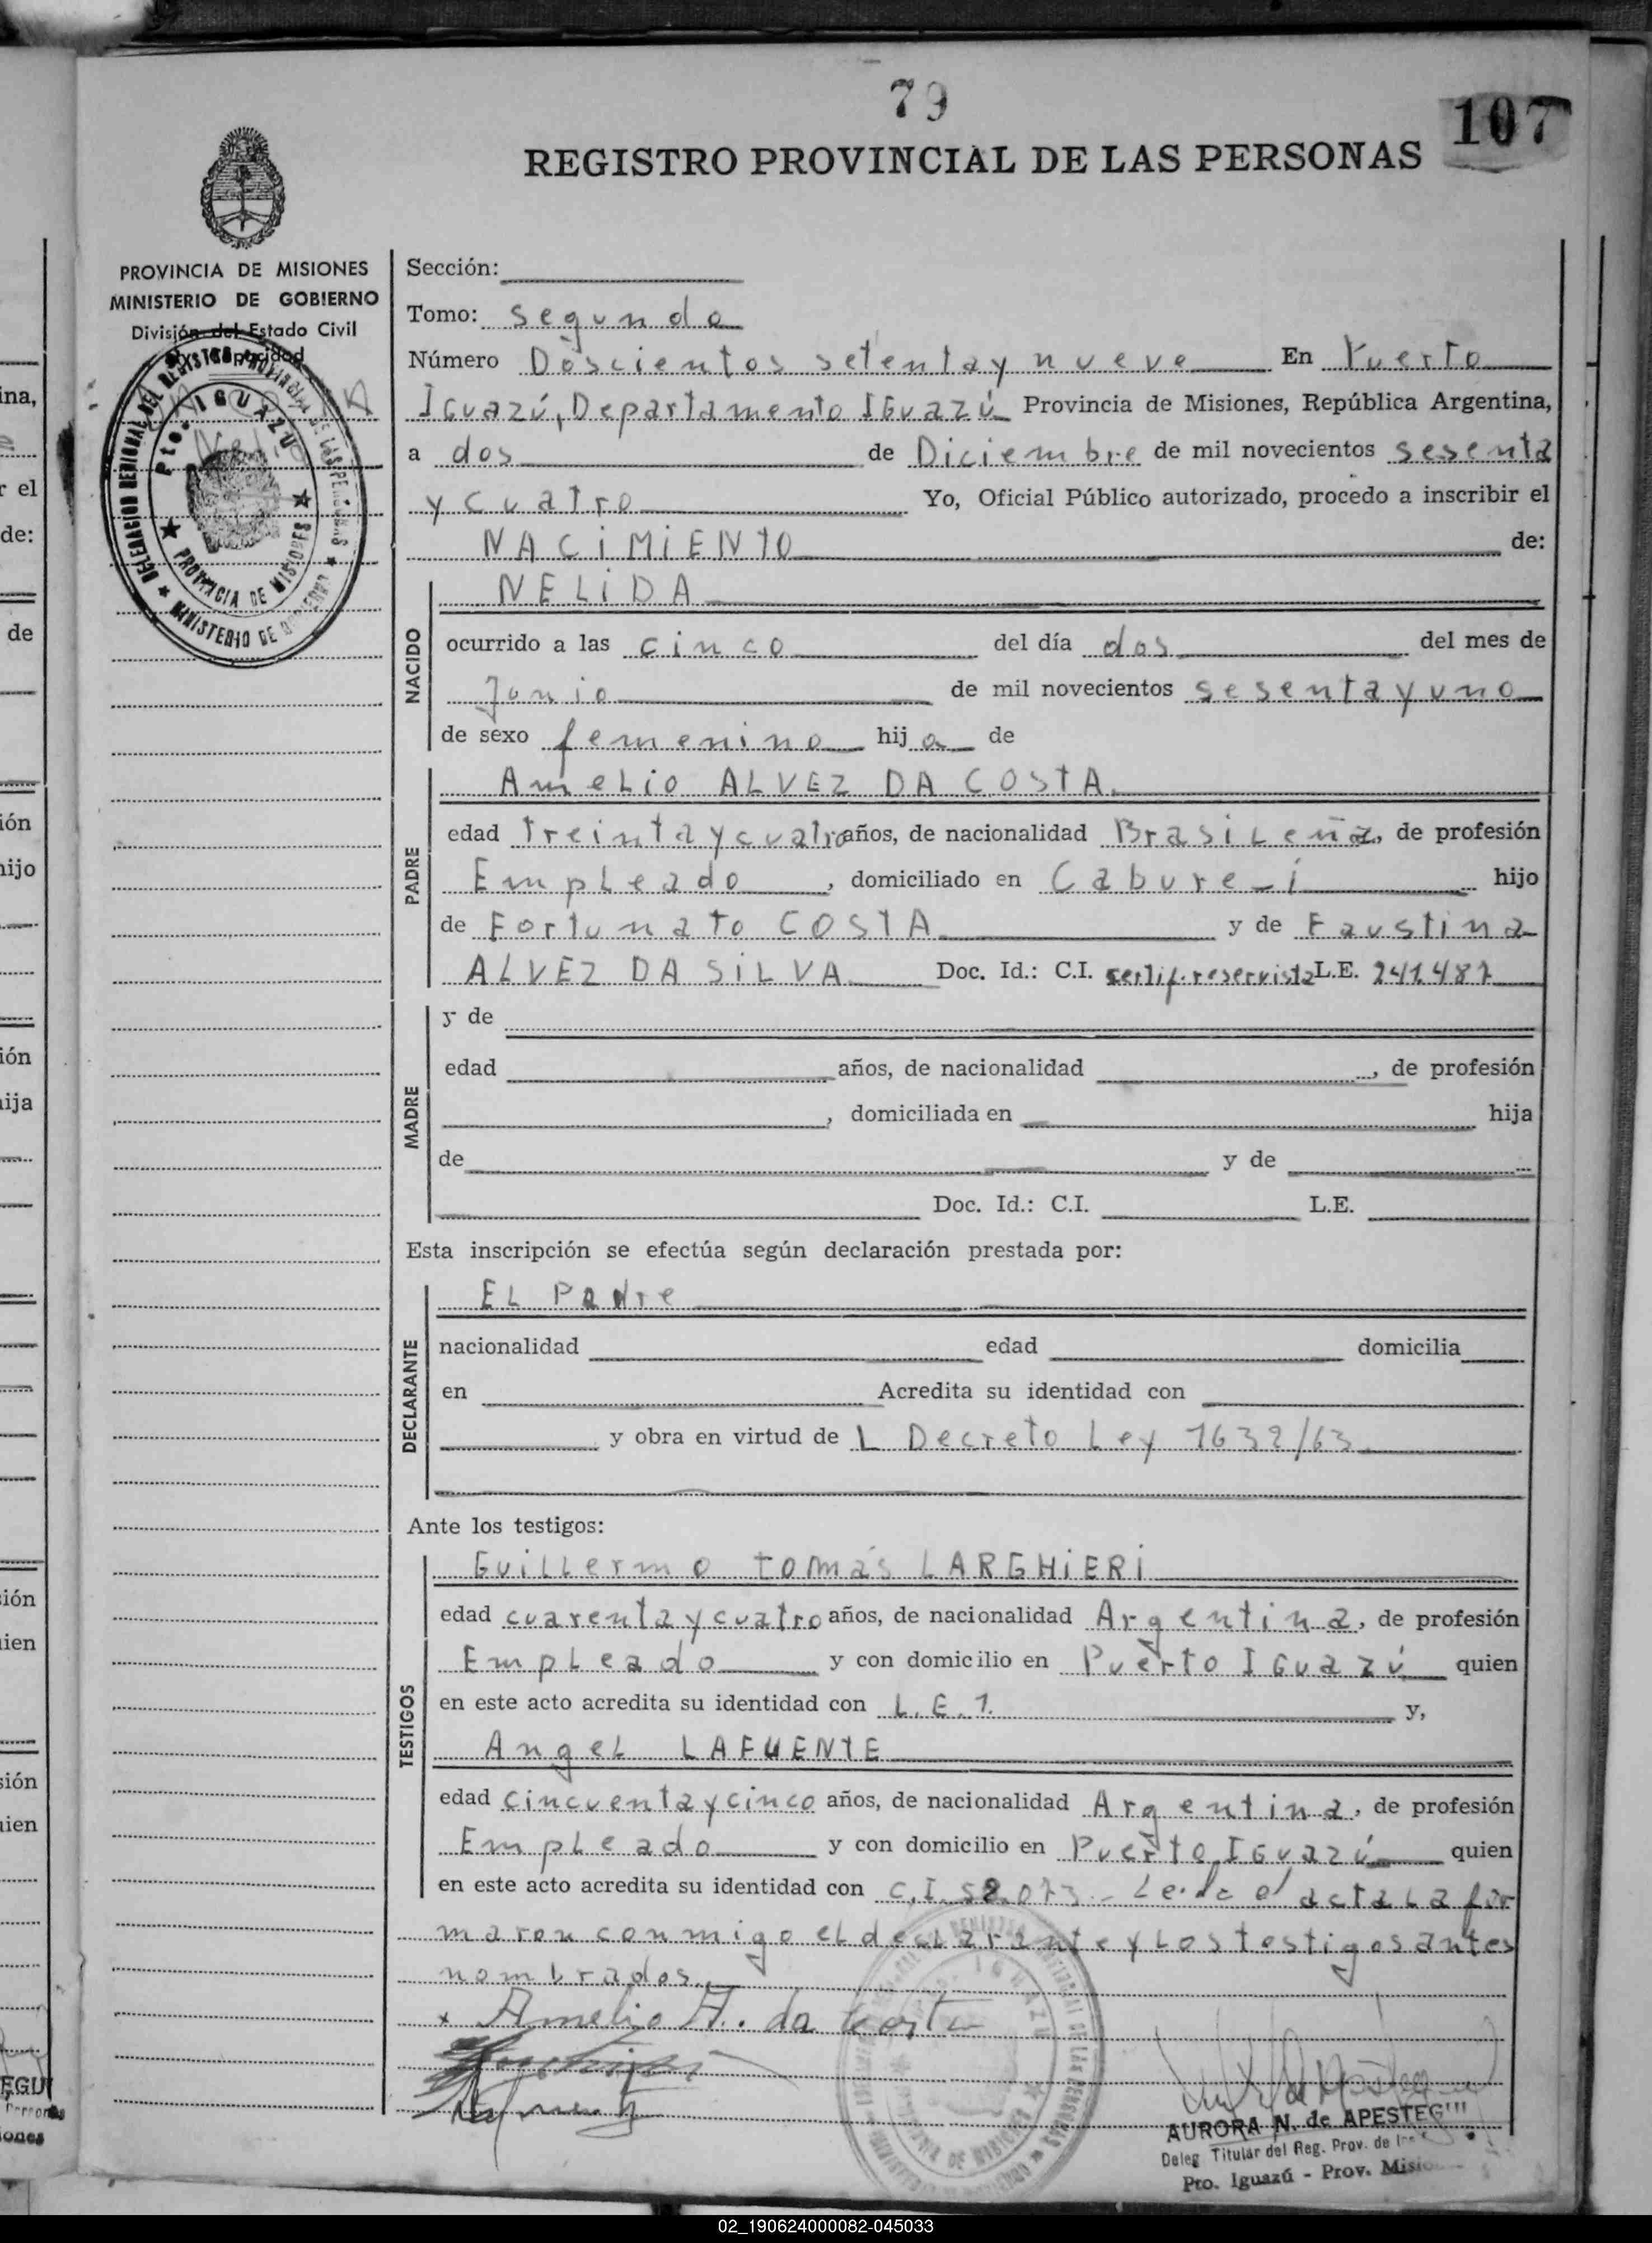 79
107
REGISTRO PROVINCIAL DE LAS PERSONAS
PROVINCIA DE MISIONES
MINISTERIO DE GOBIERNO
División del Estado Civil
y Capacidad
DELEGACION REGIONAL DEL REGISTRO PROVINCIAL DE LAS PERSONAS
Pto. IGUAZU
PROVINCIA DE MISIONES
MINISTERIO DE GOBIERNO
Sección:
Tomo: segundo
Número Doscientos setenta y nueve En Puerto
Iguazú, Departamento Iguazú Provincia de Misiones, República Argentina,
a dos de Diciembre de mil novecientos sesenta
y cuatro Yo, Oficial Público autorizado, procedo a inscribir el
NACIMIENTO de:
NACIDO
NELIDA
ocurrido a las cinco del día dos del mes de
Junio de mil novecientos sesenta y uno
de sexo femenino hij a de
PADRE
Amelio ALVEZ DA COSTA
edad treinta y cuatro años, de nacionalidad Brasileña, de profesión
Empleado, domiciliado en Cabure-i hijo
de Fortunato COSTA y de Faustina
ALVEZ DA SILVA Doc. Id.: C.I. sertif. reservista L.E. 241.487
MADRE
y de
edad años, de nacionalidad , de profesión
, domiciliada en hija
de y de
Doc. Id.: C.I. L.E.
Esta inscripción se efectúa según declaración prestada por:
DECLARANTE
EL Padre
nacionalidad edad domicilia
en Acredita su identidad con
y obra en virtud de L Decreto Ley 1632/63
Ante los testigos:
TESTIGOS
Guillermo Tomás LARGHIERI
edad cuarenta y cuatro años, de nacionalidad Argentina, de profesión
Empleado y con domicilio en Puerto Iguazú quien
en este acto acredita su identidad con L.E. 1. y,
Angel LAFUENTE
edad cincuenta y cinco años, de nacionalidad Argentina, de profesión
Empleado y con domicilio en Puerto Iguazú quien
en este acto acredita su identidad con C.I. 58.073 - Leida el acta la fir
maron conmigo el declarante y los testigos antes
nombrados.
x Amelio A. da Costa
AURORA N. de APESTEGUI
Deleg. Titular del Reg. Prov. de
Pto. Iguazú - Prov. Misio
02_190624000082-045033